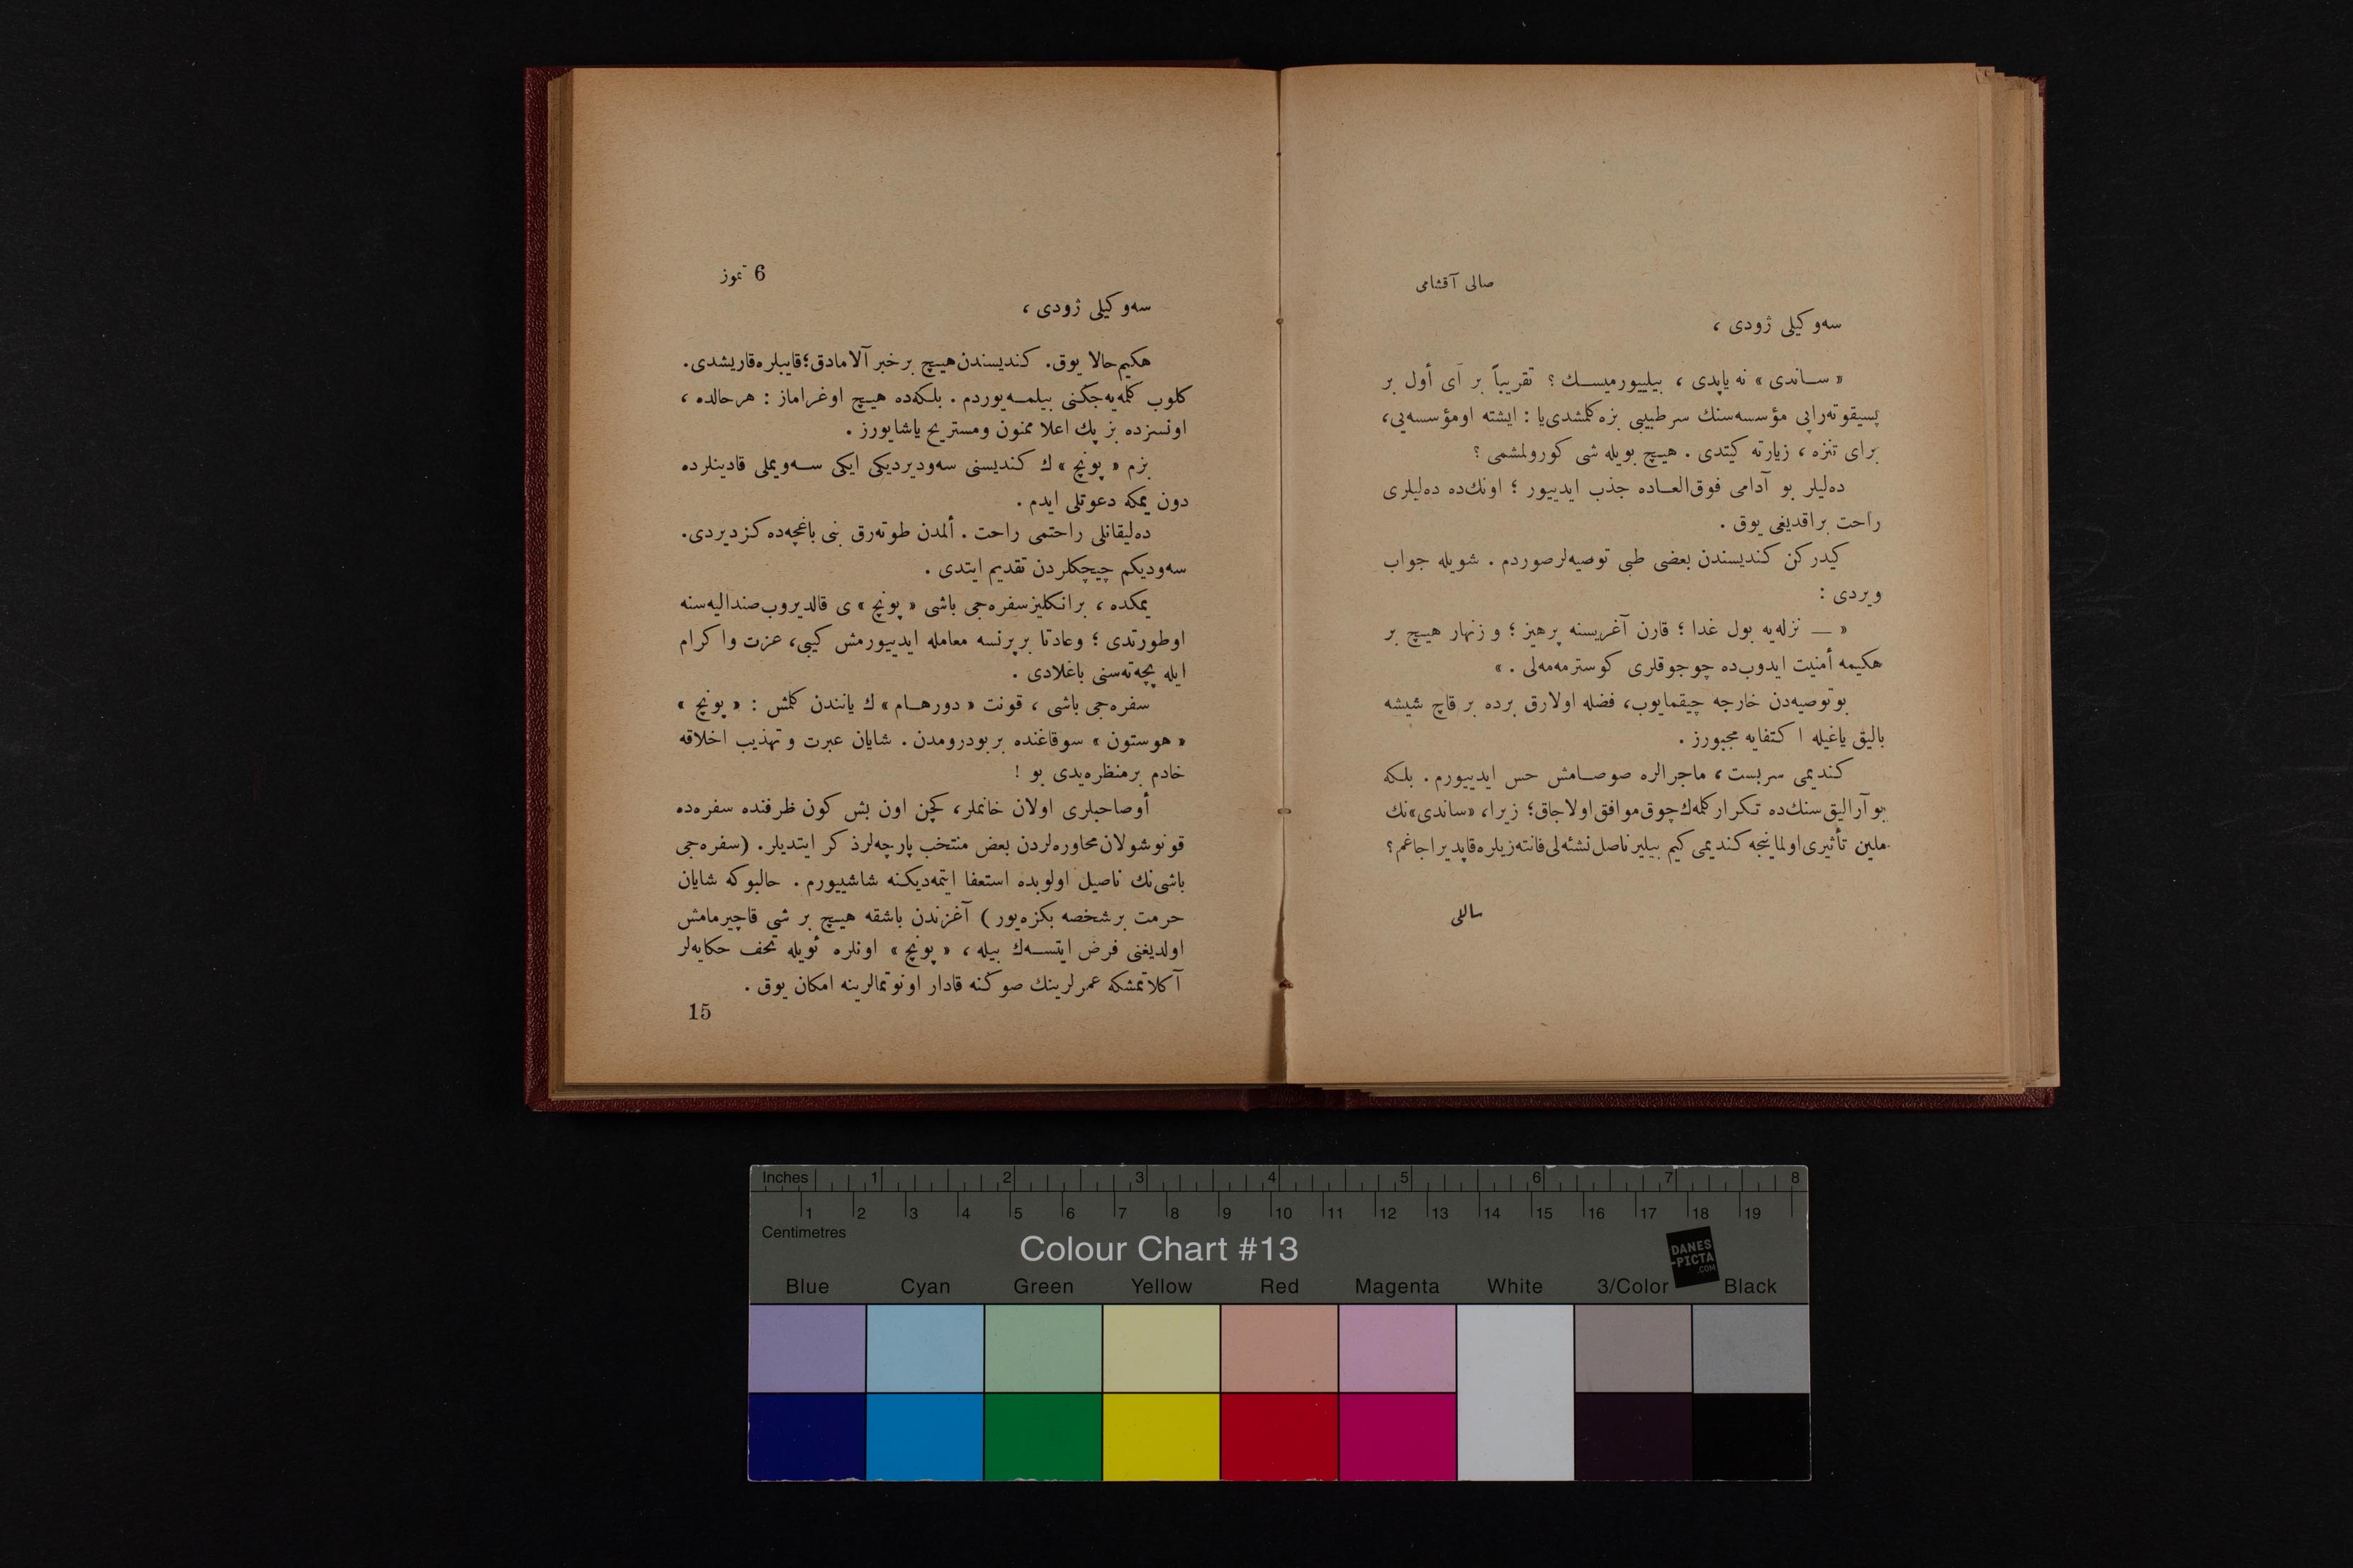 صالی آقشامی
سه‌وكیلی ژودی ،
« ساندی » نه یاپدی ، بیلییورمیسك ؟ تقریباً بر آی أول بر
پسیقوته‌راپی مؤسسه‌سنك سرطبیبی بزه كلمشدی یا : ایشته اومؤسسه‌یی،
برای تنزه ، زیارته كیتدی . هیچ بویله شی كورولمشمی ؟
ده‌لیلر بو آدامی فوق‌العاده جذب ایدییور ؛ اونك‌ده ده‌لیلری
راحت براقدیغی یوق .
كیدركن كندیسندن بعضی طبی توصیه‌لرصوردم . شویله جواب
ویردی :
« — نزله‌یه بول غدا ؛ قارن آغریسنه پرهیز ؛ و زنهار هیچ بر
هكیمه أمنیت ایدوب‌ده چوجوقلری كوسترمه‌مه‌لی . »
بوتوصیه‌دن خارجه چیقمایوب، فضله اولارق برده بر قاچ شیشه
بالیق یاغیله ا كتفایه مجبورز .
كندیمی سربست ، ماجرالره صوصامش حس ایدییورم . بلكه
بو آرالیق سنك‌ده تكرار كلمه‌ك چوق موافق اولاجاق؛ زیرا، «ساندی»نك
ملین تأثیری اولماینجه كندیمی كیم بیلیر ناصل نشئه‌لی فانته‌زیلره قاپدیراجاغم ؟
ساللی
6 تموز
سه‌وكیلی ژودی ،
هكیم حالا یوق. كندیسندن هیچ برخبر آلامادق؛ قایبلره قاریشدی.
كلوب كلمه‌یه‌جكنی بیلمه‌یوردم . بلكه‌ده هیچ اوغراماز : هرحالده ،
اونسزده بز پك اعلا ممنون ومستریح یاشایورز .
بزم « پونچ » ك كندیسنی سه‌ودیردیكی ایكی سه‌ویملی قادینلرده
دون یمكه دعوتلی ایدم .
ده‌لیقانلی راحتمی راحت . ألمدن طوته‌رق بنی باغچه‌ده كزدیردی.
سه‌ودیكم چیچكلردن تقدیم ایتدی .
یمكده ، برانكلیز سفره‌جی باشی « پونچ » ی قالدیروب صندالیه‌سنه
اوطورتدی ؛ وعادتا برپرنسه معامله ایدییورمش كیبی، عزت وا كرام
ایله پچه‌ته‌سنی باغلادی .
سفره‌جی باشی ، قونت « دورهام » ك یانندن كلمش : « پونچ »
« هوستون » سوقاغنده بربودرومدن . شایان عبرت و تهذیب اخلاقه
خادم برمنظره‌یدی بو !
أوصاحبلری اولان خانملر، كچن اون بش كون ظرفنده سفره‌ده
قونوشولان محاوره‌لردن بعض منتخب پارچه‌لرذكر ایتدیلر. (سفره‌جی
باشی‌نك ناصیل اولوبده استعفا ایتمه‌دیكنه شاشییورم . حالبوكه شایان
حرمت برشخصه بكزه‌یور) آغزندن باشقه هیچ بر شی قاچیرمامش
اولدیغنی فرض ایتسه‌ك بیله ، « پونچ » اونلره ئویله تحف حكایه‌لر
آكلاتمشكه عمرلرینك صوكنه قادار اونوتمالرینه امكان یوق .
15
Inches 1 2 3 4 5 6 7 8
1 2 3 4 5 6 7 8 9 10 11 12 13 14 15 16 17 18 19
Centimetres
Colour Chart #13
DANES
-PICTA
.COM
Blue Cyan Green Yellow Red Magenta White 3/Color Black